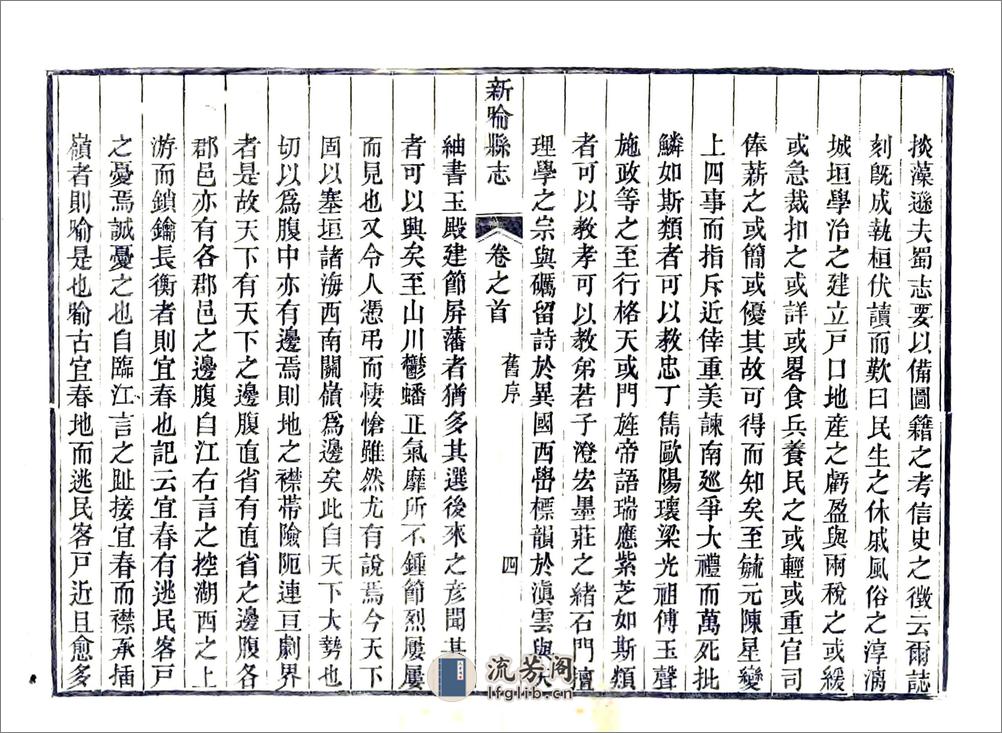 掞藻遜夫蜀志要以備圖籍之考信史之徵云爾誌
刻既成執桓伏讀而歎曰民生之休戚風俗之淳漓
城垣學治之建立戸口地産之虧盈與兩稅之或緩
或急裁扣之或詳或畧食兵養民之或輕或重官司
俸薪之或簡或優其故可得而知矣至毓元陳星變
上四事而指斥近倖重美諫南廵爭大禮而萬死批
鱗如斯類者可以教忠丁雋歐陽瓌梁光祖傅玉聲
施政等之至行格天或門旌帝語瑞應紫芝如斯類
者可以教孝可以教弟若子澄宏墨莊之緒石門擅
理學之宗與礪留詩於異國西嶨標韻於滇雲與夫
新喻縣志
卷之首
舊序
四
紬書玉殿建節屏藩者猶多其選後來之彦聞其
者可以興矣至山川鬱蟠正氣靡所不鍾節烈屢屢
而見也又令人憑弔而悽愴雖然尤有說焉今天下
固以塞垣諸海西南關嶺爲邊矣此自天下大勢也
切以爲腹中亦有邊焉則地之襟帶險阨連亘劇界
者是故天下有天下之邊腹直省有直省之邊腹各
郡邑亦有各郡邑之邊腹自江右言之控湖西之上
游而鎖鑰長衡者則宜春也記云宜春有逃民客戸
之憂焉誠憂之也自臨江言之趾接宜春而襟承插
嶺者則喻是也喻古宜春地而逃民客戸近且愈多
流芳阁
lfglib.cn